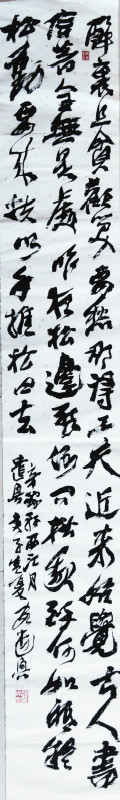 醉裏且貪歡笑要愁那得工夫近來始覺古人書
信着全無是處昨夜松邊醉倒問松我醉何如
松動要來扶以手推松曰去
辛棄疾西江月
遣興